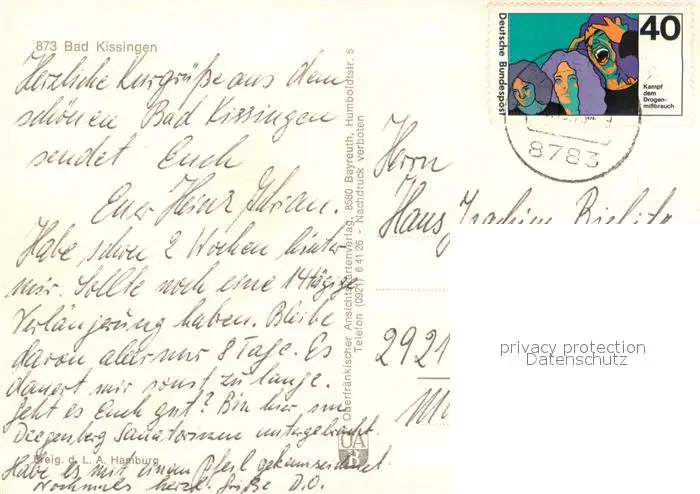 873 Bad Kissingen
Herzliche Kurgrüße aus dem
schönen Bad Kissingen
sendet Euch
Euer Heinz
Habe schon 2 Wochen hinter
mir. Sollte noch eine 14tägige
Verlängerung haben. Bleibe
davon aber nur 8 Tage. Es
dauert mir sonst zu lange.
Geht es Euch gut? Bin hier im
Deegenberg Sanatorium untergebracht.
Habe es mit einem Pfeil gekennzeichnet.
Nochmals herzl. Grüße D.O.
Freig. d. L. A. Hamburg
Oberfränkischer Ansichtskartenverlag, 8580 Bayreuth, Humboldtstr. 5
Telefon (0921) 6 41 26 - Nachdruck verboten
Deutsche Bundespost
40
Kampf
dem
Drogen-
mißbrauch
8783
Herrn
Hans Joachim
2921
privacy protection
Datenschutz